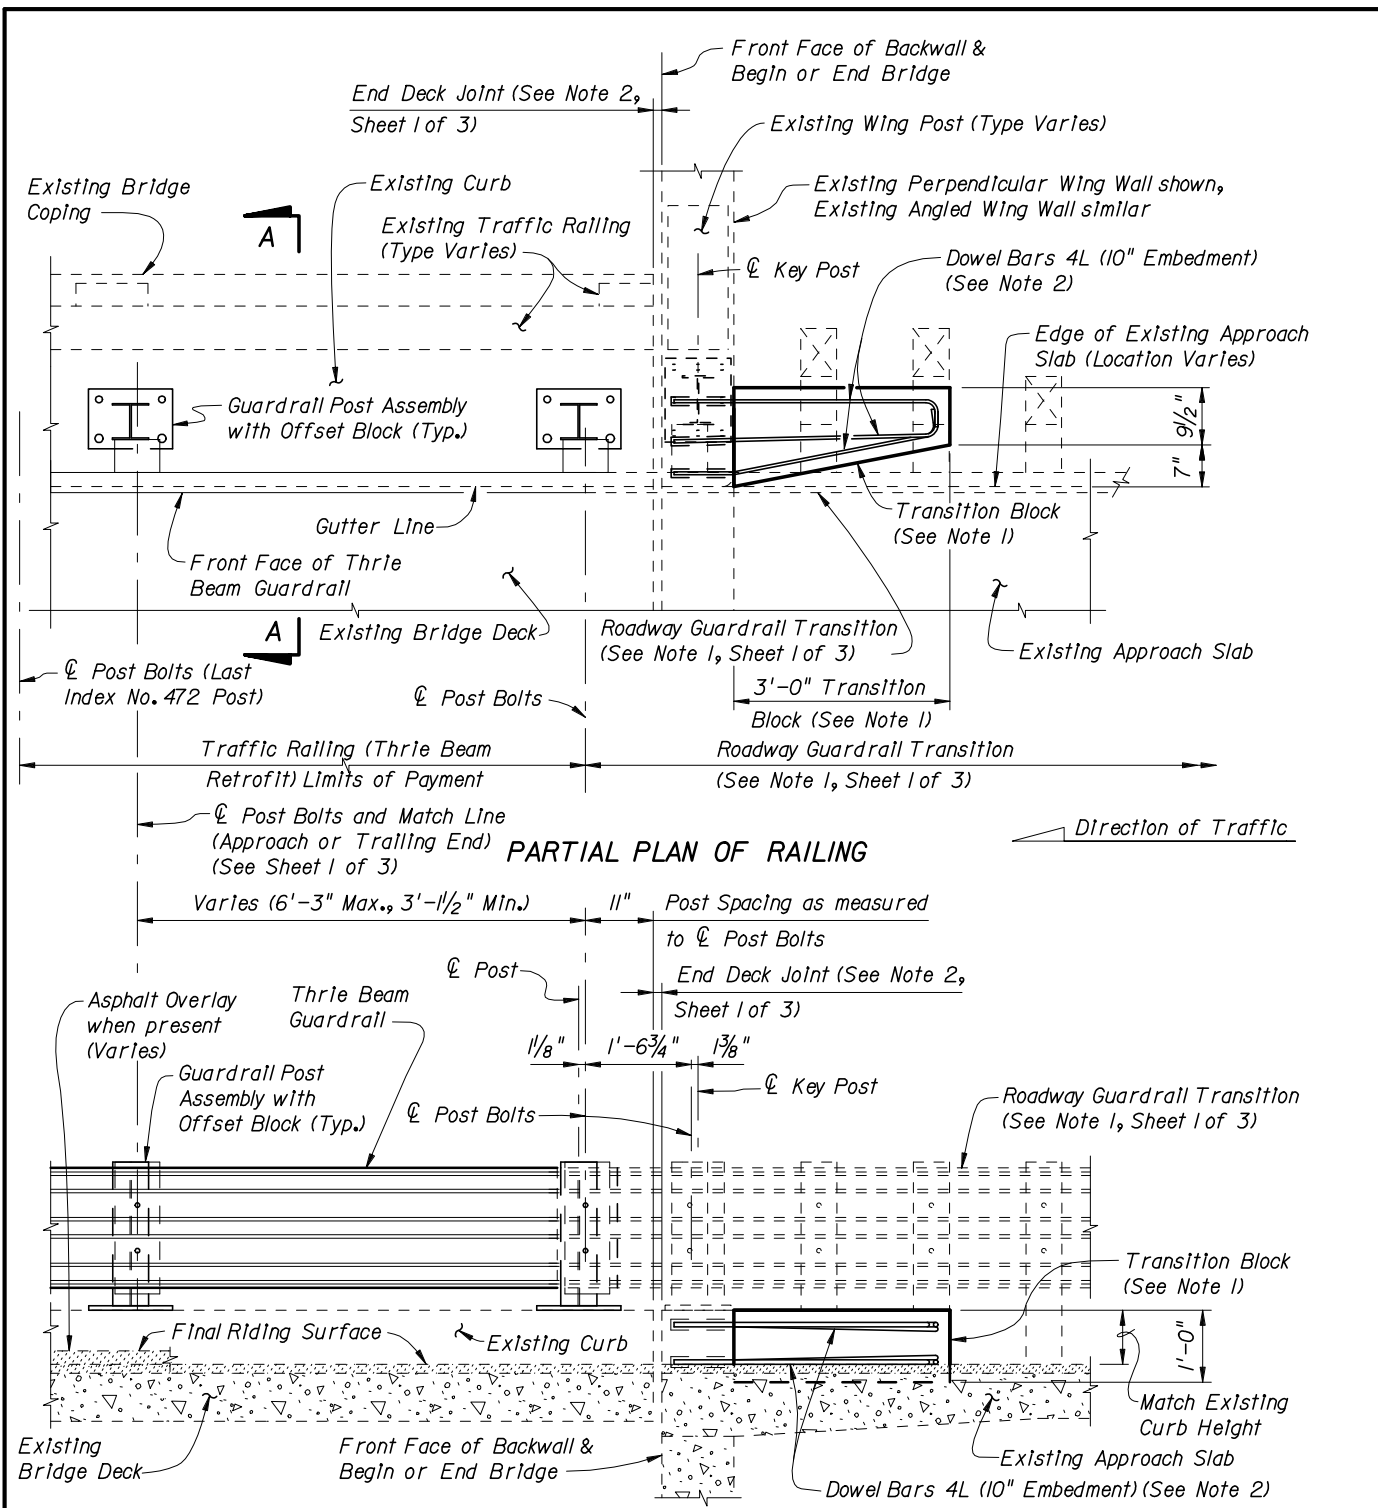 Front Face of Backwall &
Begin or End Bridge
End Deck Joint (See Note 2,
Sheet 1 of 3)
Existing Wing Post (Type Varies)
Existing Bridge
Coping
Existing Curb
Existing Perpendicular Wing Wall shown,
Existing Angled Wing Wall similar
A
Existing Traffic Railing
(Type Varies)
℄ Key Post
Dowel Bars 4L (10" Embedment)
(See Note 2)
Edge of Existing Approach
Slab (Location Varies)
Guardrail Post Assembly
with Offset Block (Typ.)
9½"
7"
Gutter Line
Transition Block
(See Note 1)
Front Face of Thrie
Beam Guardrail
A
Existing Bridge Deck
Roadway Guardrail Transition
(See Note 1, Sheet 1 of 3)
Existing Approach Slab
℄ Post Bolts (Last
Index No. 472 Post)
℄ Post Bolts
3'-0" Transition
Block (See Note 1)
Traffic Railing (Thrie Beam
Retrofit) Limits of Payment
Roadway Guardrail Transition
(See Note 1, Sheet 1 of 3)
℄ Post Bolts and Match Line
(Approach or Trailing End)
(See Sheet 1 of 3)
PARTIAL PLAN OF RAILING
Direction of Traffic
Varies (6'-3" Max., 3'-1½" Min.)
11"
Post Spacing as measured
to ℄ Post Bolts
℄ Post
End Deck Joint (See Note 2,
Sheet 1 of 3)
Asphalt Overlay
when present
(Varies)
Thrie Beam
Guardrail
1⅛"
1'-6¾"
1⅜"
Guardrail Post
Assembly with
Offset Block (Typ.)
℄ Post Bolts
℄ Key Post
Roadway Guardrail Transition
(See Note 1, Sheet 1 of 3)
Transition Block
(See Note 1)
Final Riding Surface
Existing Curb
1'-0"
Match Existing
Curb Height
Existing
Bridge Deck
Front Face of Backwall &
Begin or End Bridge
Existing Approach Slab
Dowel Bars 4L (10" Embedment) (See Note 2)